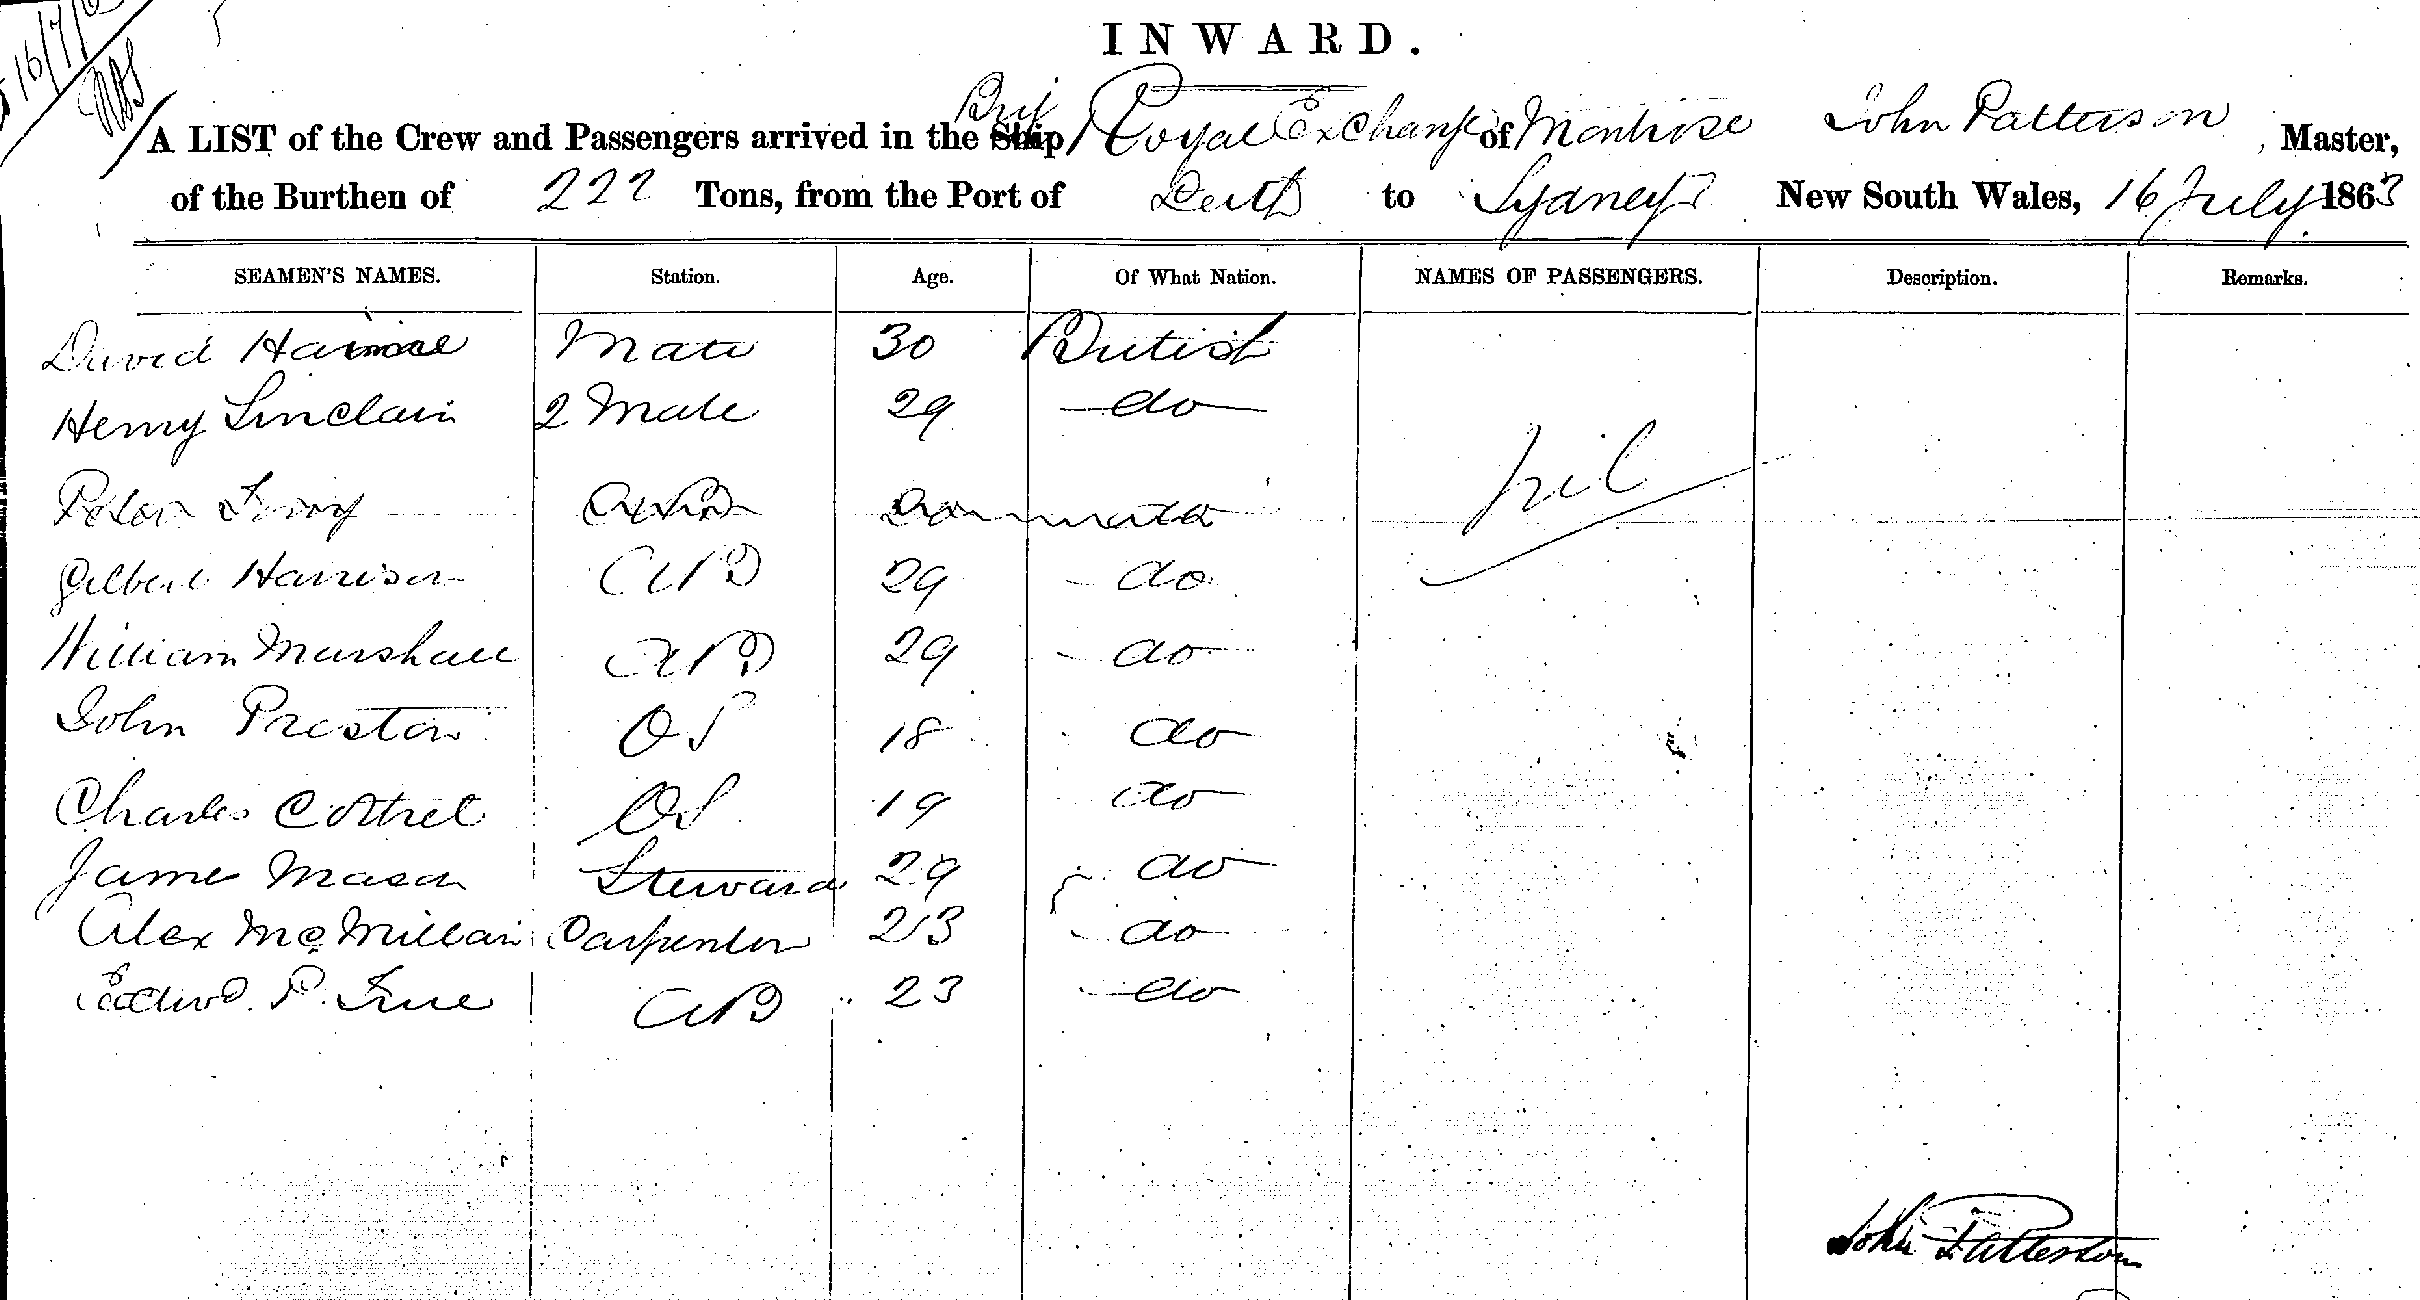 16/7/6
INWARD.
A LIST of the Crew and Passengers arrived in the Ship Brig Royal Exchange of Montrose John Patterson, Master,
of the Burthen of 222 Tons, from the Port of Leith to Sydney New South Wales, 16 July 1863
SEAMEN'S NAMES. Station. Age. Of What Nation. NAMES OF PASSENGERS. Description. Remarks.
David Mate 30 British
Henry Sinclair 2 Mate 29 do
nil
Peter
Gilbert Harrison AB 29 do
William Marshall AB 29 do
John Preston OS 18 do
Charles Cottrel OS 19 do
James Mason Steward 29 do
Alex McMillan Carpenter 23 do
Edwd. P. True AB 23 do
John Patterson